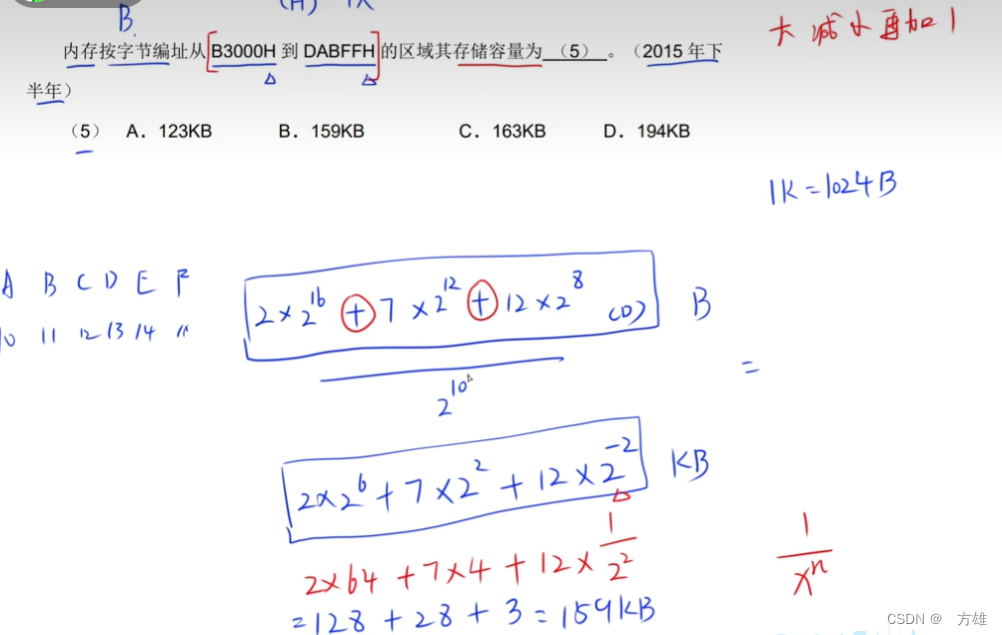 B
(H)
大减小再加1
内存按字节编址从B3000H 到 DABFFH的区域其存储容量为 (5) 。（2015 年下
半年）
（5） A．123KB B．159KB C．163KB D．194KB
1K=1024B
A B C D E F
10 11 12 13 14
2×2^16 + 7×2^12 + 12×2^8 (D) B
=
2^10
2×2^6 + 7×2^2 + 12×2^-2 KB
2×64 + 7×4 + 12× 1/2^2
1/x^n
=128 + 28 + 3 = 159KB
CSDN @ 方雄